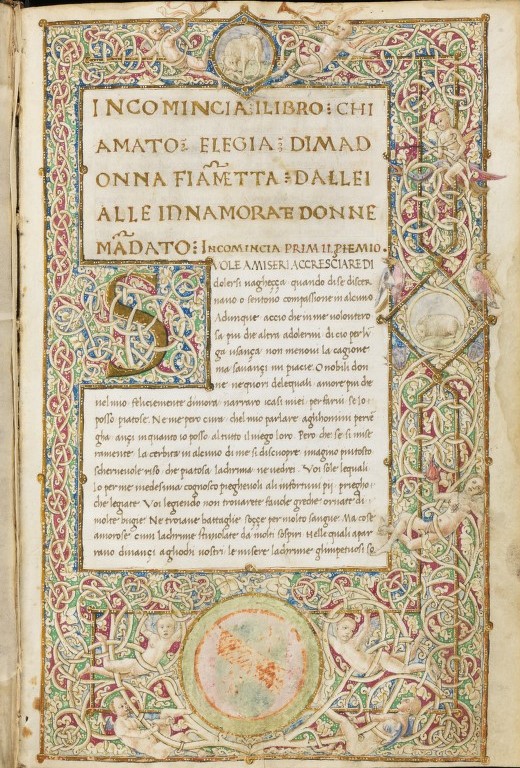 INCOMINCIA: ILIBRO: CHI
AMATO: ELEGIA: DIMAD
ONNA FIAMETTA: DALLEI
ALLE INNAMORATE DONNE
MADATO: INCOMINCIA PRIM IL PHEMIO.
SVOLE A MISERI ACCRESCIARE DI
dolersi vaghezza quando di se discer
nano o sentono compassione in alcuno
Adunque accio che in me volontero
sa piu che altra adolermi di cio per li
ga usança non menovi la cagione
ma savançi mi piacie. O nobili don
ne ne quori delequali amore piu che
nel mio felicemente dimora narraro i casi miei per farvi se io
posso piatose. Ne me per cura che l mio parlare agli homini perve
gha ançi in quanto io posso al tutto il niego loro. Pero che se si
ramente la cerbita in alcuno di me si discuopre imagino piutosto
schernevole riso che piatosa lachrima ne vedrei. Voi sole lequali
Io per me medesima cognosco pieghevoli a li infortuni pij prieghoi
che legiate Voi legiendo non trovarete favole greche ornate di
molte bugie Ne troiane battaglie soççe per molto sangue Ma cose
amorose cum lachrime stimolate da molti sospiri Nelle quali apar
ranno dinançi agliochi vostri le misere lachrime gl impetuosi so